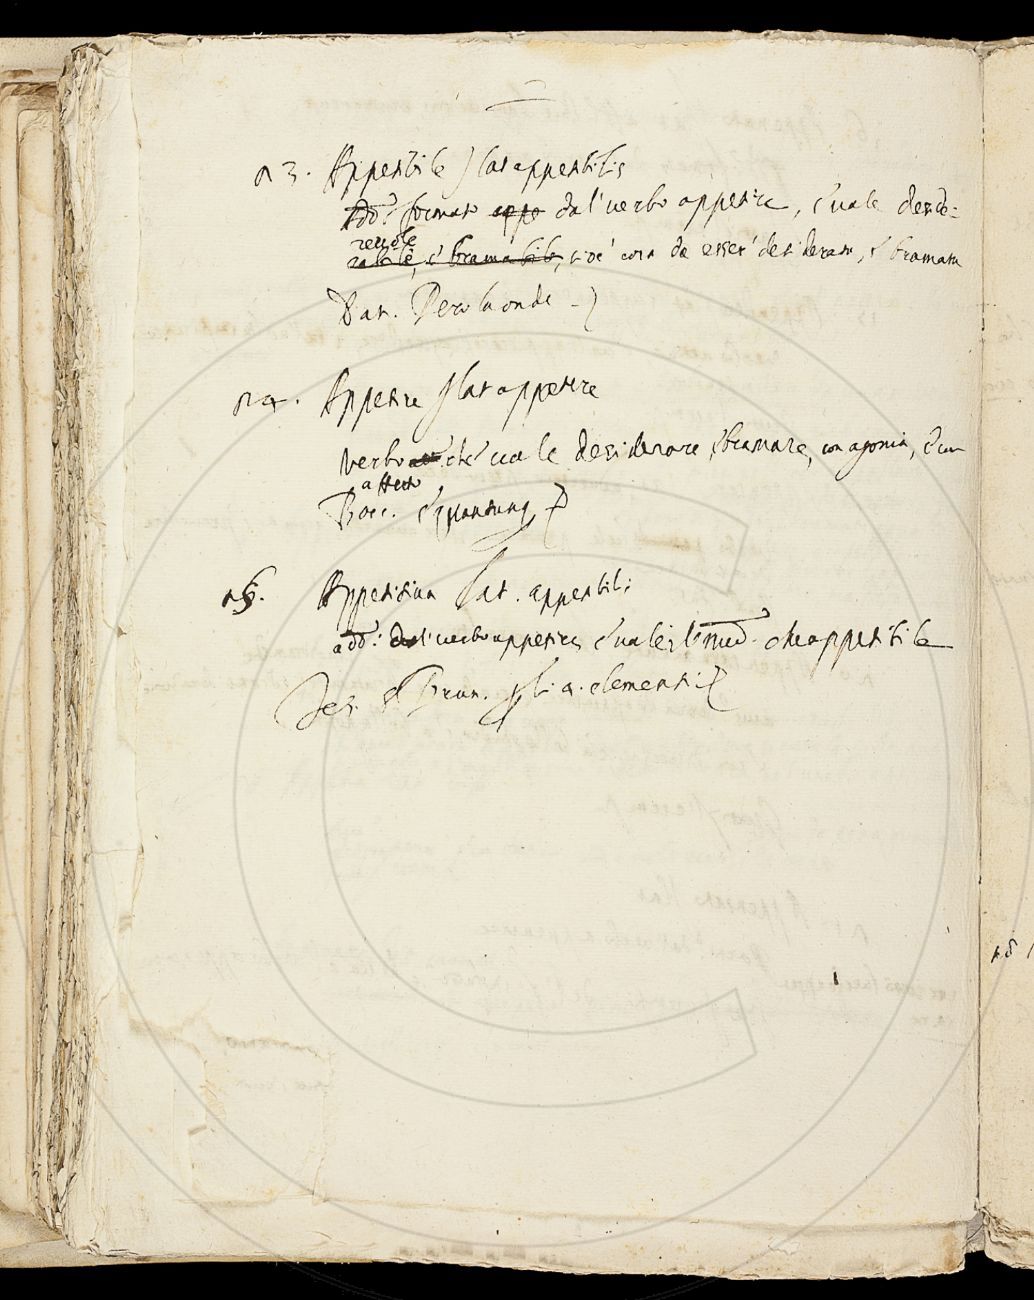 n 3. Appetibile / lat appetibilis
Add: formato appe dal' verbo appetire, e' vale deside:
revole
rabile, e' bramabile, cioè cosa da esser' desiderata, e' bramata
Dat. Però la onde
n 4. Appetire / lat appetere
verbo che' vale desiderare, e' bramare, con agonia, e' con
affecto
Bocc.
n 5. Appetitiva lat. appetibilis
add: dal' verbo appetire, e' vale il med. che appetibile
Tes. di Brun.
n 8